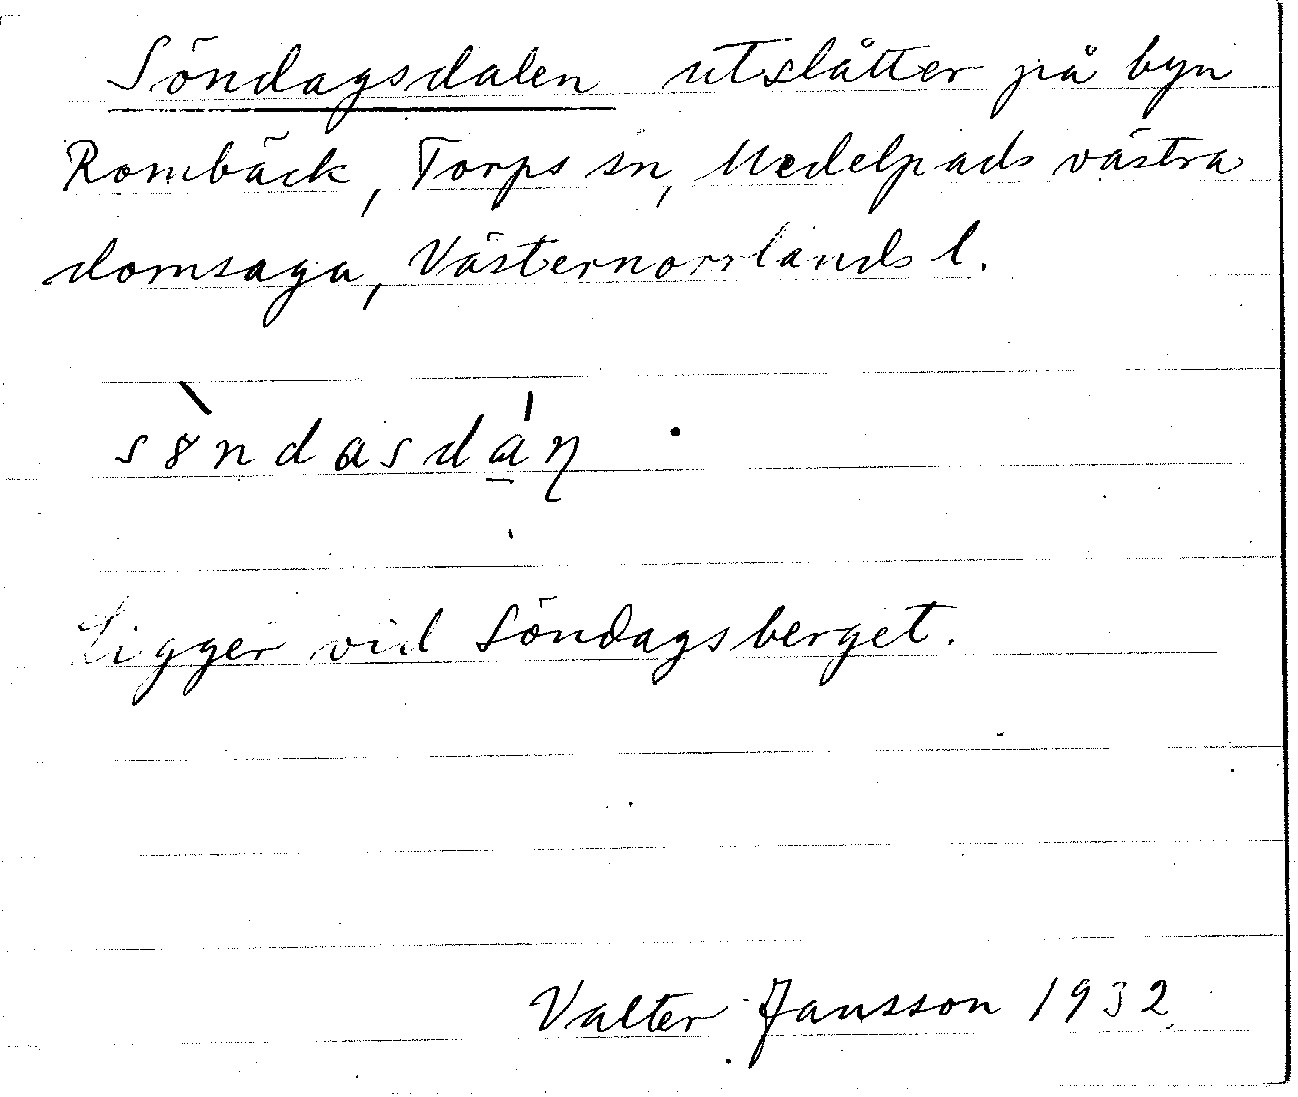 Söndagsdalen utslåtter på byn
Rombäck, Torps sn, Medelpads västra
domsaga, Västernorrlands l.
sö̀ndasdá̱ŋ .
Ligger vid Söndagsberget.
Valter Jansson 1932